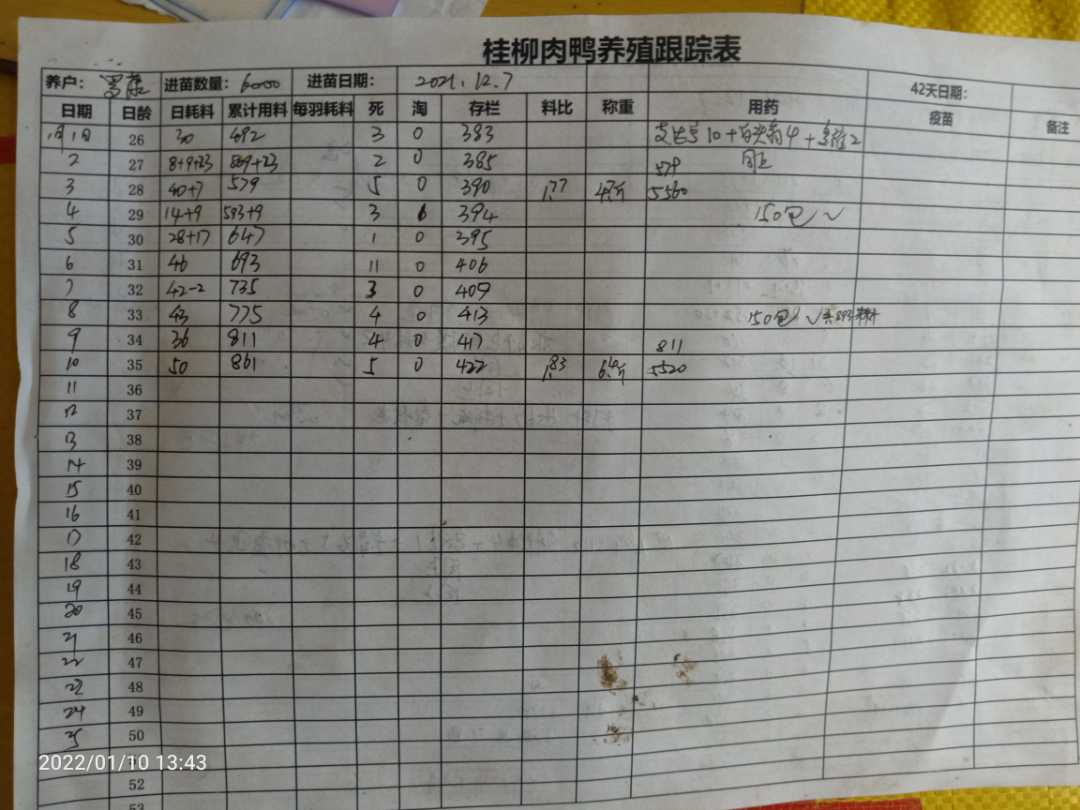 桂柳肉鸭养殖跟踪表
养户: 进苗数量: 6000 进苗日期: 2021.12.7 42天日期:
日期 日龄 日耗料 累计用料 每羽耗料 死 淘 存栏 料比 称重 用药 疫苗 备注
1月1日 26 30 492 3 0 383
2 27 8+9+23 +23 2 0 385
3 28 40+7 579 5 0 390 1.77 4.7斤 579 5560
4 29 14+9 593+9 3 0 394 150包
5 30 28+17 647 1 0 395
6 31 46 693 11 0 406
7 32 42-2 735 3 0 409
8 33 43 775 4 0 413 150包
9 34 36 811 4 0 417 811
10 35 50 861 5 0 422 1.83 6.4斤 5520
11 36
12 37
13 38
14 39
15 40
16 41
17 42
18 43
19 44
20 45
21 46
22 47
23 48
24 49
25 50
2022/01/10 13:43
52
53